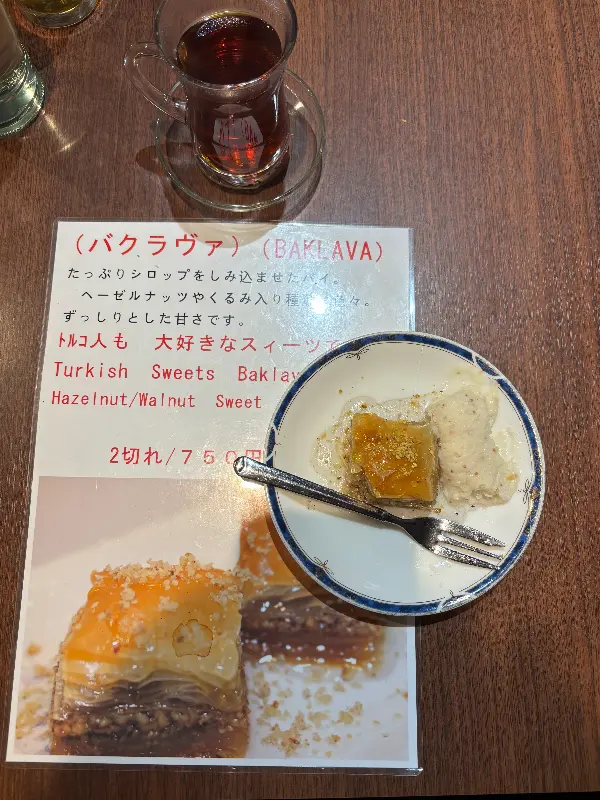 （バクラヴァ）（BAKLAVA）
たっぷりシロップをしみ込ませたパイ。
ヘーゼルナッツやくるみ入り種 々。
ずっしりとした甘さです。
ﾄﾙｺ人も 大好きなスィーツで
Turkish Sweets Baklav
Hazelnut/Walnut Sweet
2切れ/７５０円